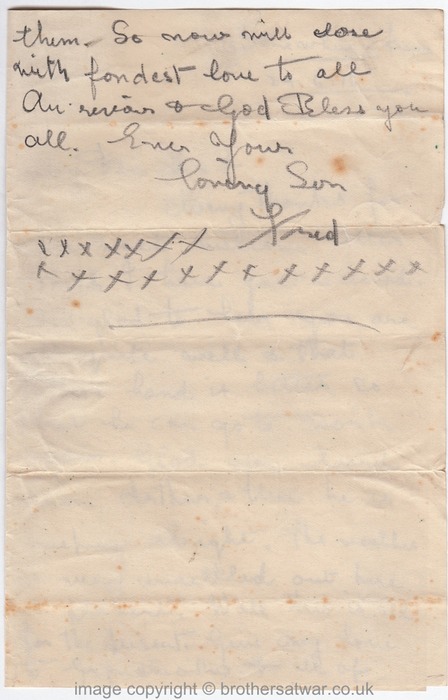 them. So now will close
with fondest love to all
Au-revoir & God Bless you
all. Ever Your
loving Son
Fred
x x x x x x x x
x x x x x x x x x x x x
image copyright © brothersatwar.co.uk